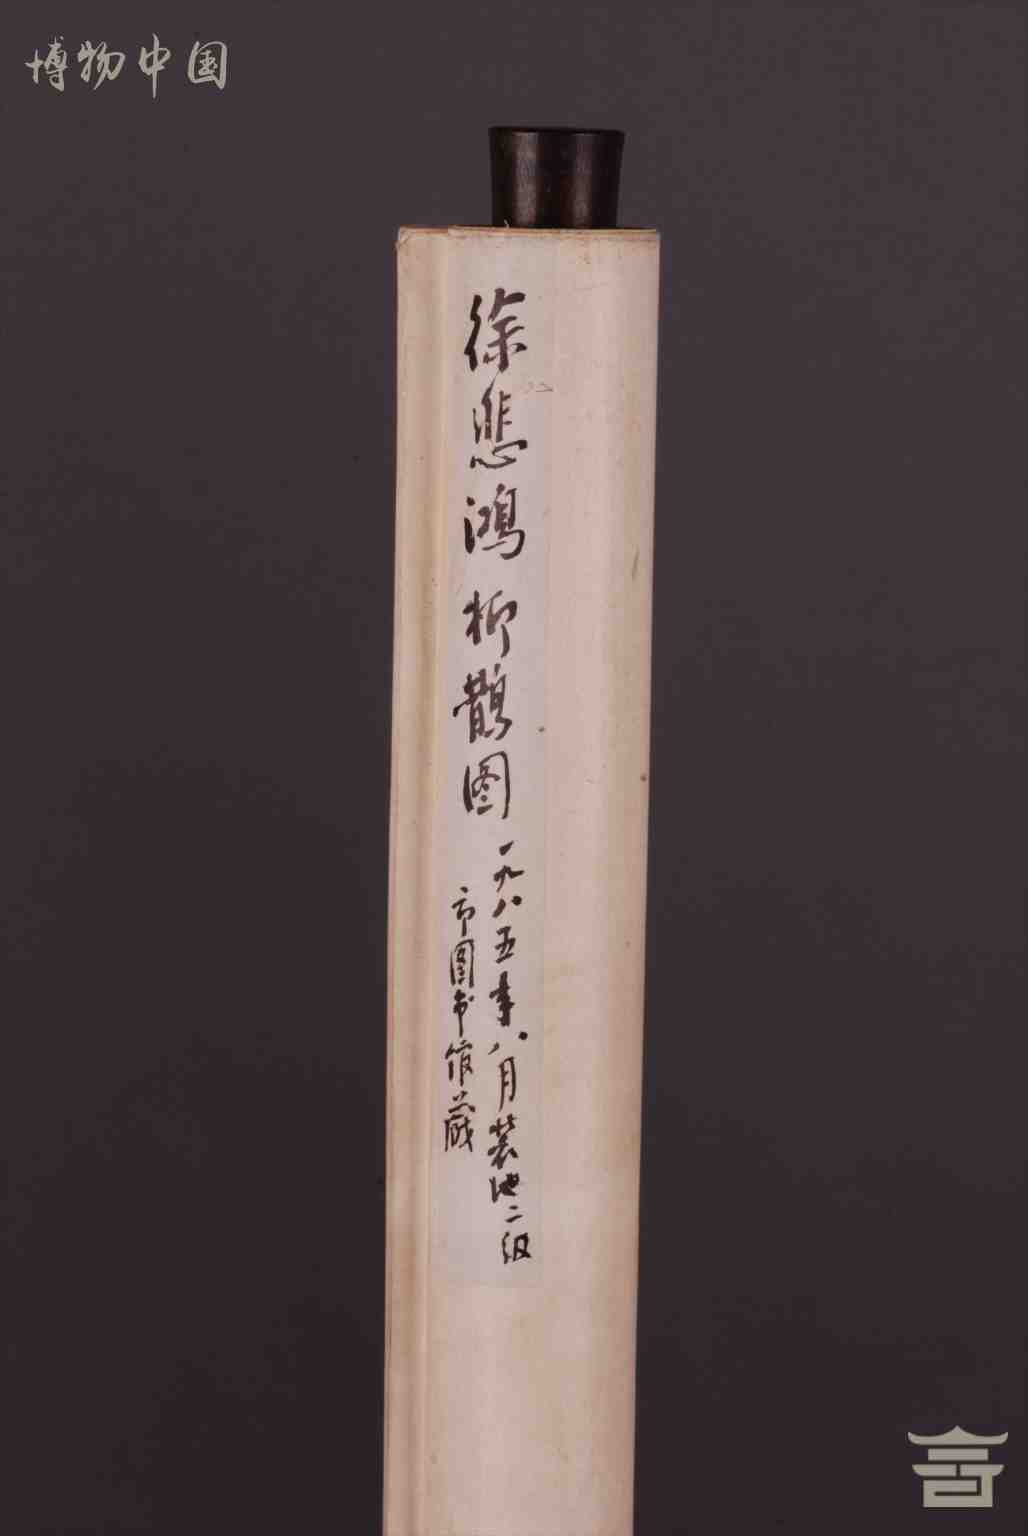 博物中国
徐悲鸿 柳鹊图
一九八五年八月装池二级
市图书馆藏